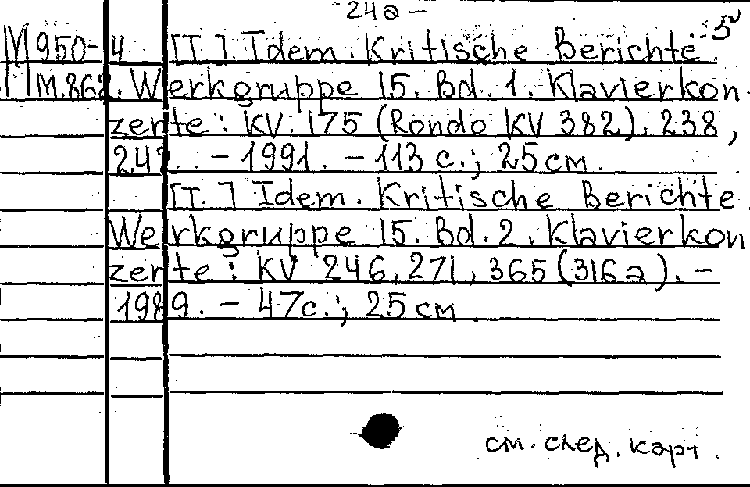 -24а-
5
М950-4 [Т. ] Idem. Kritische Berichte.
М.862. Werkgruppe 15. Bd. 1. Klavierkon-
zerte: KV. 175 (Rondo KV 382), 238,
242. – 1991. – 113 с.; 25 см.
[Т. ] Idem. Kritische Berichte.
Werkgruppe 15. Bd. 2. Klavierkon
zerte: KV 246, 271, 365 (316a). –
1989. – 47с.; 25 см.
см. след. карт.